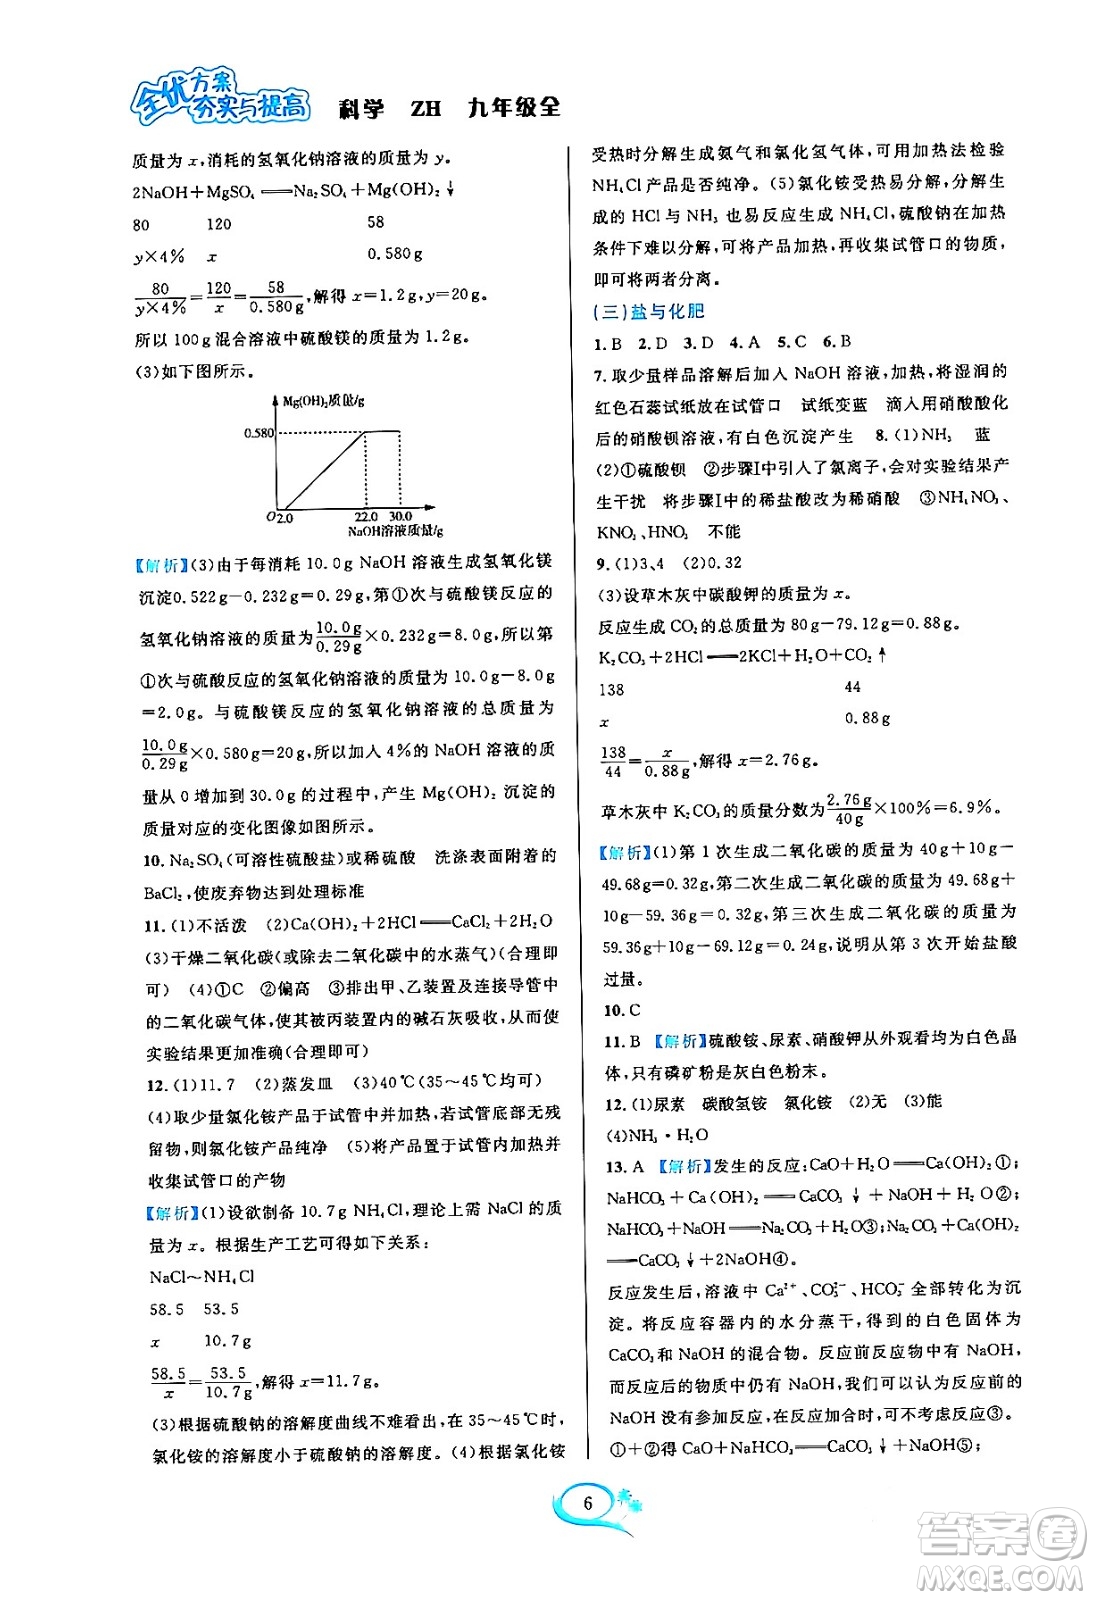 全优方案
夯实与提高
科学 ZH 九年级全
质量为 x,消耗的氢氧化钠溶液的质量为 y。
2NaOH+MgSO₄══Na₂SO₄+Mg(OH)₂↓
80 120 58
y×4% x 0.580 g
80/(y×4%)=120/x=58/0.580 g,解得 x=1.2 g,y=20 g。
所以 100 g 混合溶液中硫酸镁的质量为 1.2 g。
(3)如下图所示。
Mg(OH)₂质量/g
0.580
O 2.0 22.0 30.0
NaOH溶液质量/g
【解析】(3)由于每消耗 10.0 g NaOH 溶液生成氢氧化镁
沉淀0.522 g−0.232 g=0.29 g,第①次与硫酸镁反应的
氢氧化钠溶液的质量为10.0 g/0.29 g×0.232 g=8.0 g,所以第
①次与硫酸反应的氢氧化钠溶液的质量为 10.0 g−8.0 g
=2.0 g。与硫酸镁反应的氢氧化钠溶液的总质量为
10.0 g/0.29 g×0.580 g=20 g,所以加入 4%的 NaOH 溶液的质
量从 0 增加到 30.0 g 的过程中,产生 Mg(OH)₂ 沉淀的
质量对应的变化图像如图所示。
10. Na₂SO₄(可溶性硫酸盐)或稀硫酸 洗涤表面附着的
BaCl₂,使废弃物达到处理标准
11. (1)不活泼 (2)Ca(OH)₂+2HCl══CaCl₂+2H₂O
(3)干燥二氧化碳(或除去二氧化碳中的水蒸气)(合理即
可) (4)①C ②偏高 ③排出甲、乙装置及连接导管中
的二氧化碳气体,使其被丙装置内的碱石灰吸收,从而使
实验结果更加准确(合理即可)
12. (1)11.7 (2)蒸发皿 (3)40℃(35~45℃均可)
(4)取少量氯化铵产品于试管中并加热,若试管底部无残
留物,则氯化铵产品纯净 (5)将产品置于试管内加热并
收集试管口的产物
【解析】(1)设欲制备 10.7 g NH₄Cl,理论上需 NaCl 的质
量为 x。根据生产工艺可得如下关系:
NaCl~NH₄Cl
58.5 53.5
x 10.7 g
58.5/x=53.5/10.7 g,解得 x=11.7 g。
(3)根据硫酸钠的溶解度曲线不难看出,在 35~45℃时,
氯化铵的溶解度小于硫酸钠的溶解度。(4)根据氯化铵
受热时分解生成氨气和氯化氢气体,可用加热法检验
NH₄Cl 产品是否纯净。(5)氯化铵受热易分解,分解生
成的 HCl 与 NH₃ 也易反应生成 NH₄Cl,硫酸钠在加热
条件下难以分解,可将产品加热,再收集试管口的物质,
即可将两者分离。
(三)盐与化肥
1. B 2. D 3. D 4. A 5. C 6. B
7. 取少量样品溶解后加入 NaOH 溶液,加热,将湿润的
红色石蕊试纸放在试管口 试纸变蓝 滴入用硝酸酸化
后的硝酸钡溶液,有白色沉淀产生 8. (1)NH₃ 蓝
(2)①硫酸钡 ②步骤Ⅰ中引入了氯离子,会对实验结果产
生干扰 将步骤Ⅰ中的稀盐酸改为稀硝酸 ③NH₄NO₃、
KNO₃、HNO₃ 不能
9. (1)3、4 (2)0.32
(3)设草木灰中碳酸钾的质量为 x。
反应生成 CO₂ 的总质量为 80 g−79.12 g=0.88 g。
K₂CO₃+2HCl══2KCl+H₂O+CO₂↑
138 44
x 0.88 g
138/44=x/0.88 g,解得 x=2.76 g。
草木灰中 K₂CO₃ 的质量分数为2.76 g/40 g×100%=6.9%。
【解析】(1)第 1 次生成二氧化碳的质量为 40 g+10 g−
49.68 g=0.32 g,第二次生成二氧化碳的质量为 49.68 g+
10 g−59.36 g=0.32 g,第三次生成二氧化碳的质量为
59.36 g+10 g−69.12 g=0.24 g,说明从第 3 次开始盐酸
过量。
10. C
11. B 【解析】硫酸铵、尿素、硝酸钾从外观看均为白色晶
体,只有磷矿粉是灰白色粉末。
12. (1)尿素 碳酸氢铵 氯化铵 (2)无 (3)能
(4)NH₃·H₂O
13. A 【解析】发生的反应:CaO+H₂O══Ca(OH)₂①;
NaHCO₃+Ca(OH)₂══CaCO₃↓+NaOH+H₂O②;
NaHCO₃+NaOH══Na₂CO₃+H₂O③;Na₂CO₃+Ca(OH)₂
══CaCO₃↓+2NaOH④。
反应发生后,溶液中 Ca²⁺、CO₃²⁻、HCO₃⁻ 全部转化为沉
淀。将反应容器内的水分蒸干,得到的白色固体为
CaCO₃和 NaOH 的混合物。反应前反应物中没有 NaOH,
而反应后的物质中仍有 NaOH,我们可以认为反应前的
NaOH 没有参加反应,在反应加合时,可不考虑反应③。
①+②得:CaO+NaHCO₃══CaCO₃↓+NaOH⑤;
6
答案圈
MXQE.COM